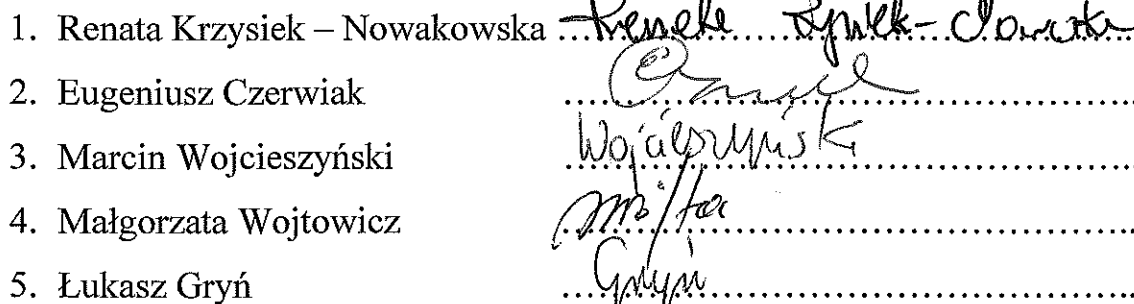 1. Renata Krzysiek – Nowakowska
2. Eugeniusz Czerwiak
3. Marcin Wojcieszyński Wojcieszyński
4. Małgorzata Wojtowicz
5. Łukasz Gryń Gryń